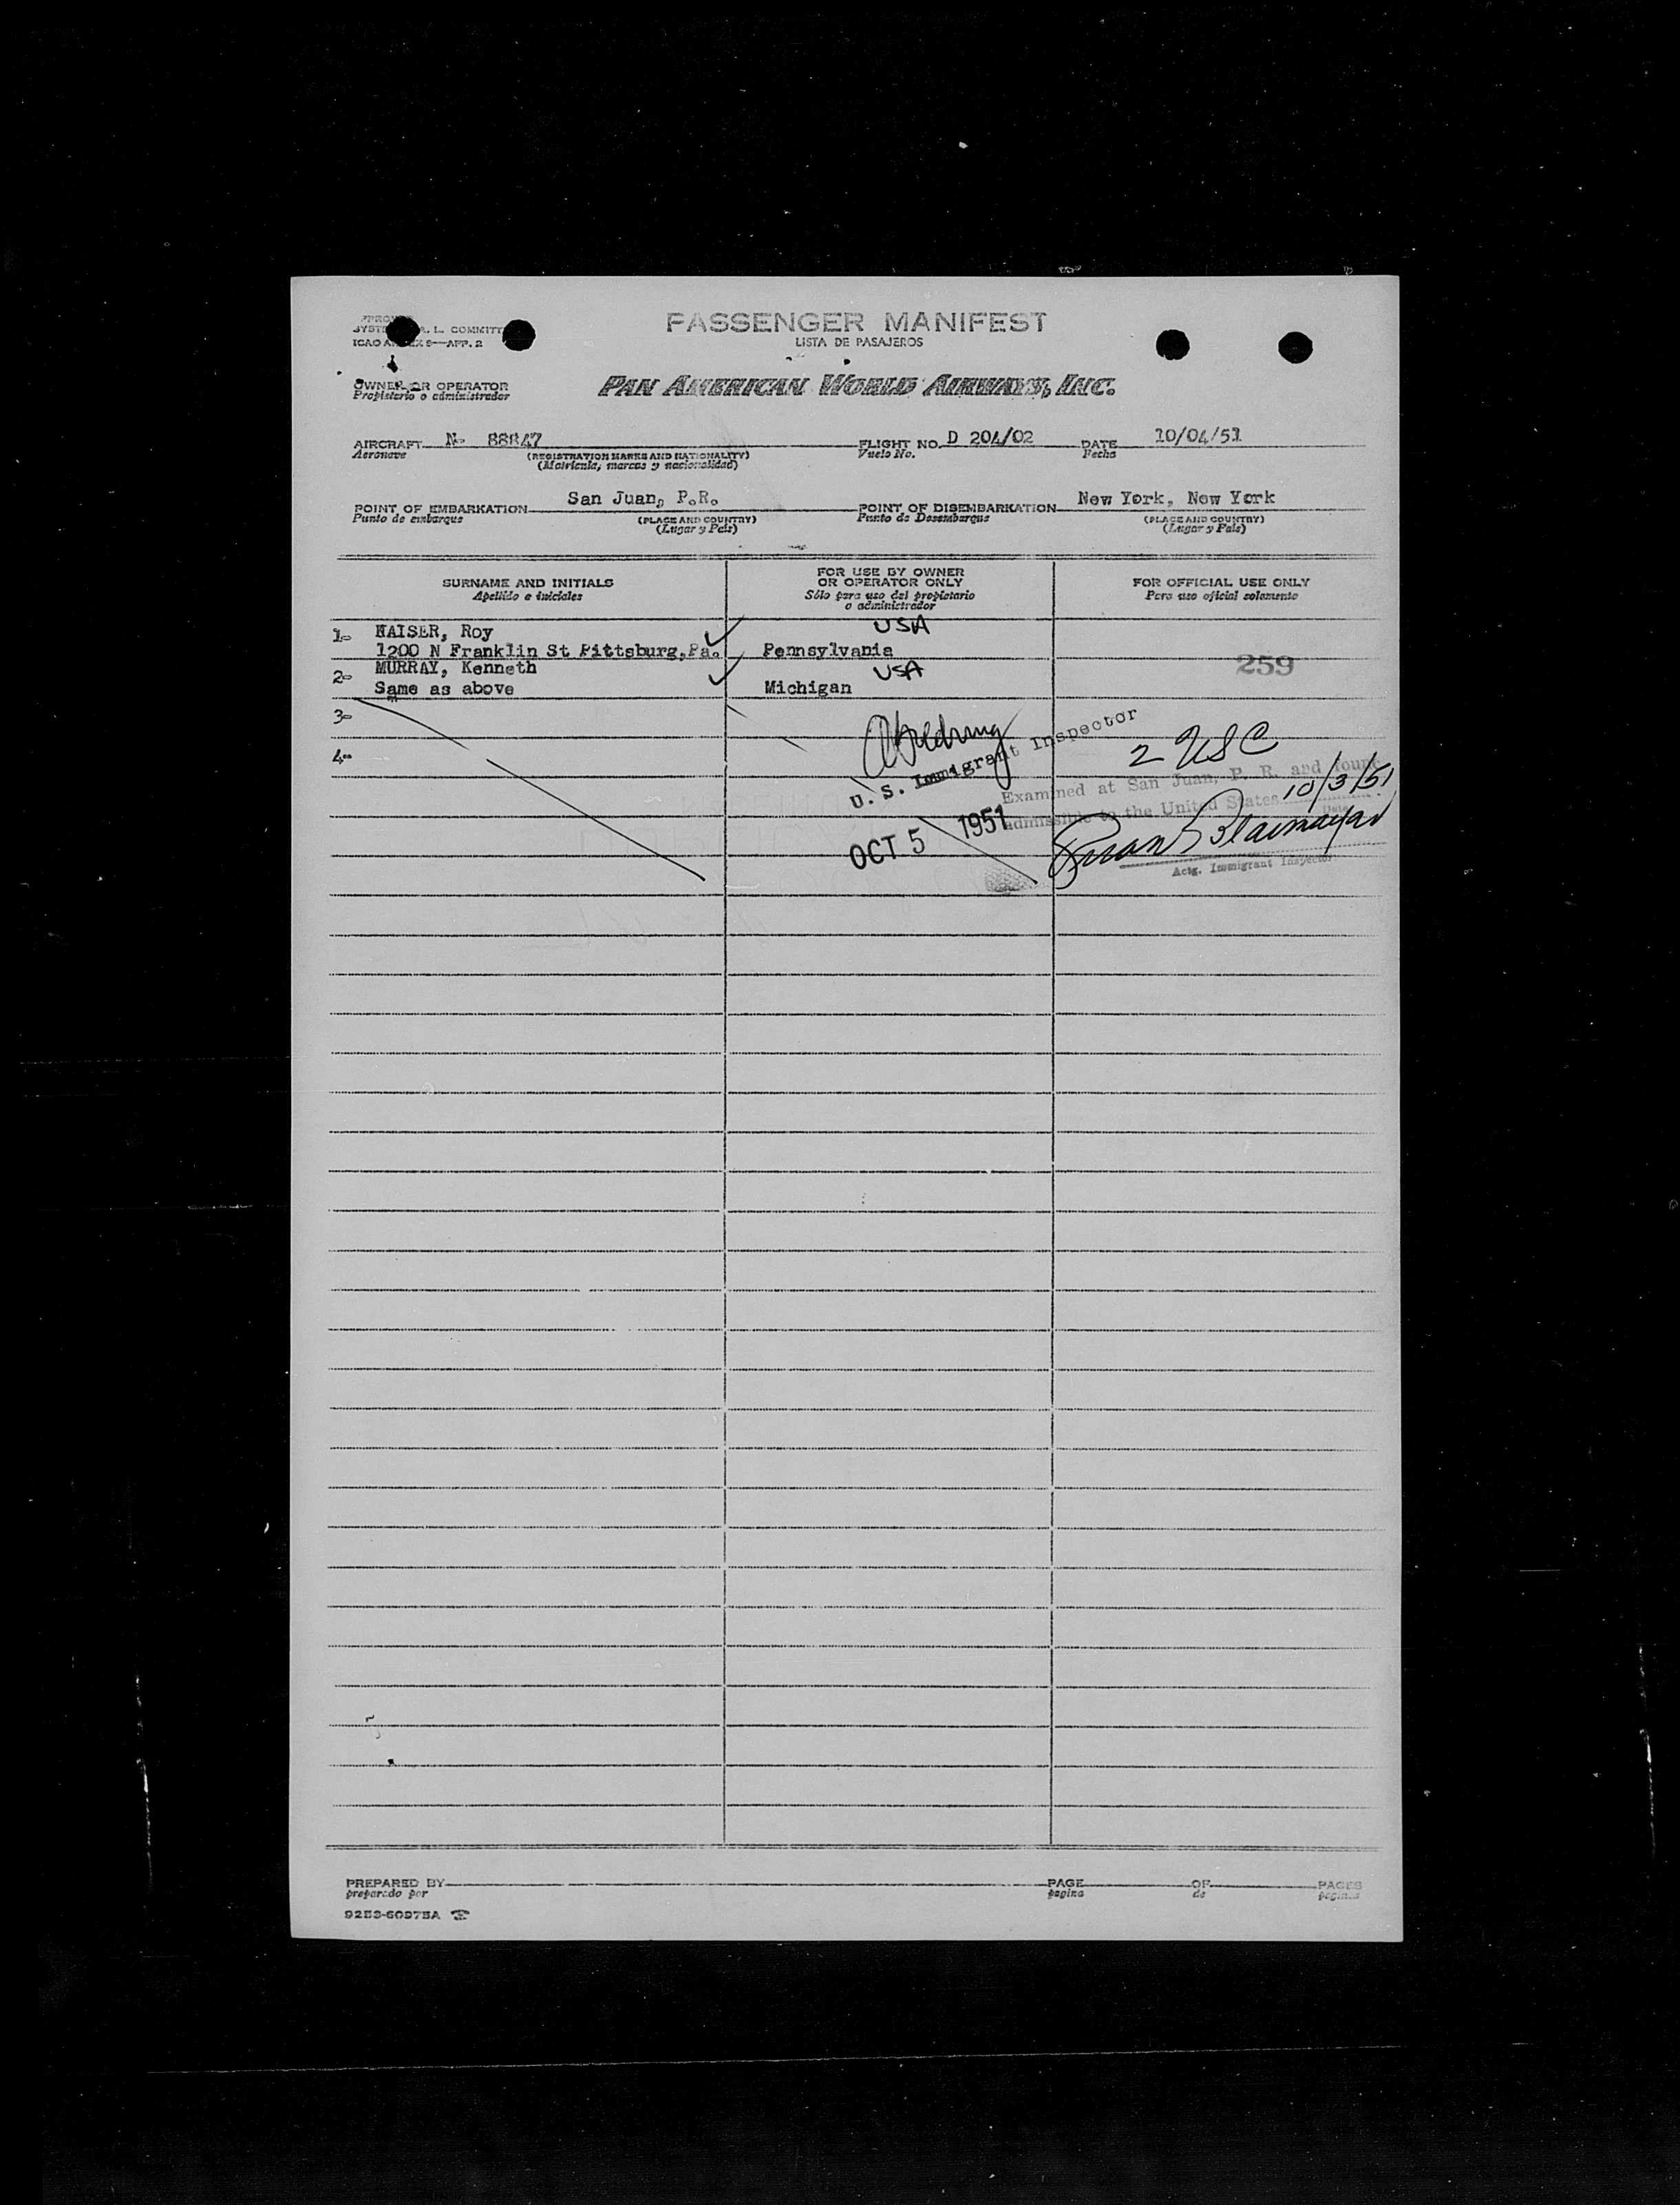 PASSENGER MANIFEST
LISTA DE PASAJEROS
ICAO ANNEX 9—APP. 2
OWNER OR OPERATOR
Propietario o administrador
PAN AMERICAN WORLD AIRWAYS, INC.
AIRCRAFT N- 88847 FLIGHT NO. D 204/02 DATE 10/04/51
Aeronave (REGISTRATION MARKS AND NATIONALITY) Vuelo No. Fecha
(Matricula, marcas y nacionalidad)
San Juan, P.R. New York, New York
POINT OF EMBARKATION POINT OF DISEMBARKATION
Punto de embarque (PLACE AND COUNTRY) Punto de Desembarque (PLACE AND COUNTRY)
(Lugar y País) (Lugar y País)
SURNAME AND INITIALS
Apellido e iniciales
FOR USE BY OWNER
OR OPERATOR ONLY
Sólo para uso del propietario
o administrador
FOR OFFICIAL USE ONLY
Para uso oficial solamente
1- KAISER, Roy USA
1200 N Franklin St Pittsburg,Pa. Pennsylvania
259
2- MURRAY, Kenneth USA
Same as above Michigan
3-
4-
U. S. Immigrant Inspector
OCT 5 1951
2 USC
Examined at San Juan, P. R. and found
admissible to the United States 10/3/51
Date
Actg. Immigrant Inspector
PREPARED BY PAGE OF PAGES
preparado por pagina de paginas